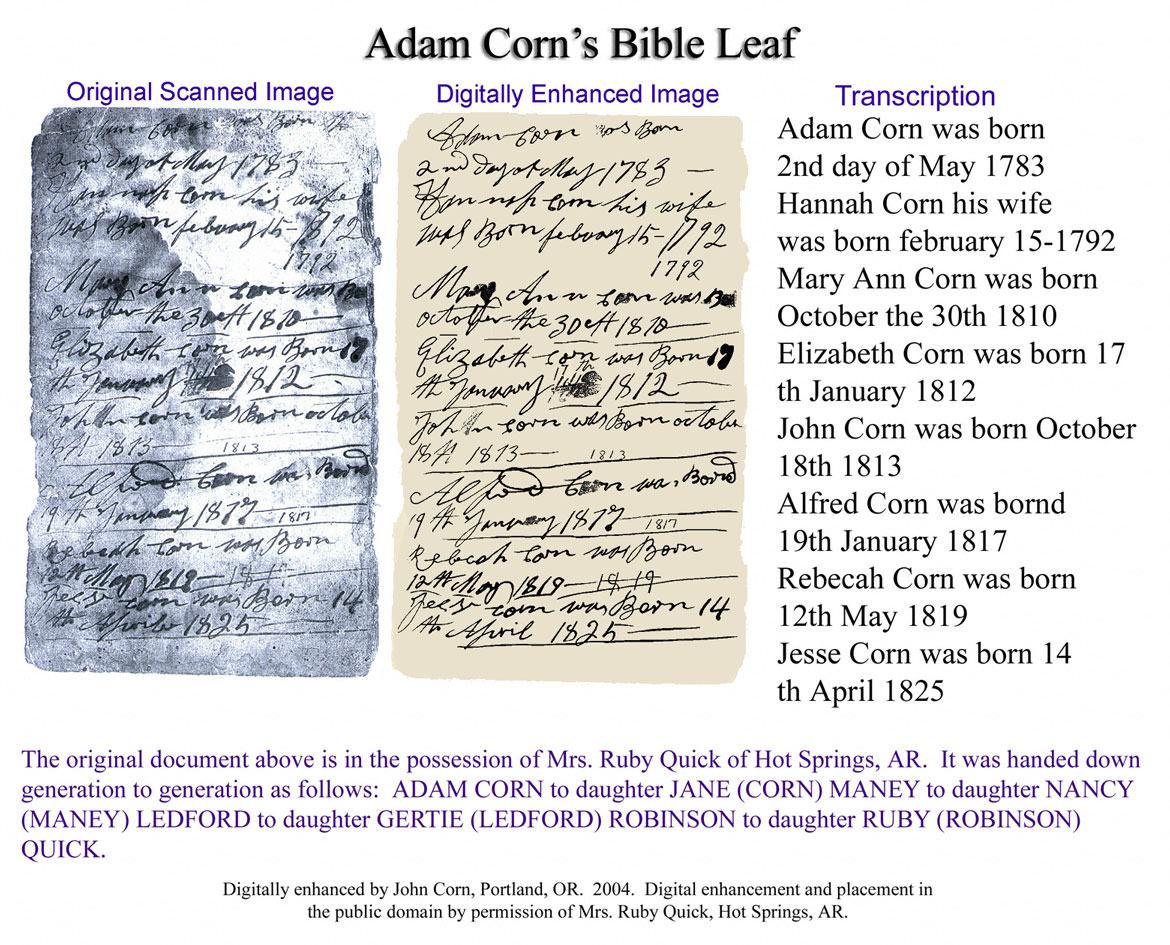 Adam Corn's Bible Leaf
Original Scanned Image
Adam Corn was Born
2nd day of May 1783 —
Hannah Corn his wife
was Born febuary 15-1792
1792
Mary Ann Corn was Bo
october the 30th 1810
Elizabeth Corn was Born 17
th January 1812
John corn was Born octobe
18th 1813 — 1813
Alfred Corn was Bornd
19th January 1817 1817
Rebecah Corn was Born
12th May 1819 — 1819
Jesse corn was Born 14
th Aprile 1825
Digitally Enhanced Image
Adam Corn was Born
2nd day of May 1783 —
Hannah Corn his wife
was Born febuary 15-1792
1792
Mary Ann Corn was Bo
october the 30th 1810
Elizabeth Corn was Born 17
th January 1812
John corn was Born octobe
18th 1813 — 1813
Alfred Corn was Bornd
19th January 1817 1817
Rebecah Corn was Born
12th May 1819 — 1819
Jesse corn was Born 14
th April 1825
Transcription
Adam Corn was born
2nd day of May 1783
Hannah Corn his wife
was born february 15-1792
Mary Ann Corn was born
October the 30th 1810
Elizabeth Corn was born 17
th January 1812
John Corn was born October
18th 1813
Alfred Corn was bornd
19th January 1817
Rebecah Corn was born
12th May 1819
Jesse Corn was born 14
th April 1825
The original document above is in the possession of Mrs. Ruby Quick of Hot Springs, AR. It was handed down
generation to generation as follows: ADAM CORN to daughter JANE (CORN) MANEY to daughter NANCY
(MANEY) LEDFORD to daughter GERTIE (LEDFORD) ROBINSON to daughter RUBY (ROBINSON)
QUICK.
Digitally enhanced by John Corn, Portland, OR. 2004. Digital enhancement and placement in
the public domain by permission of Mrs. Ruby Quick, Hot Springs, AR.